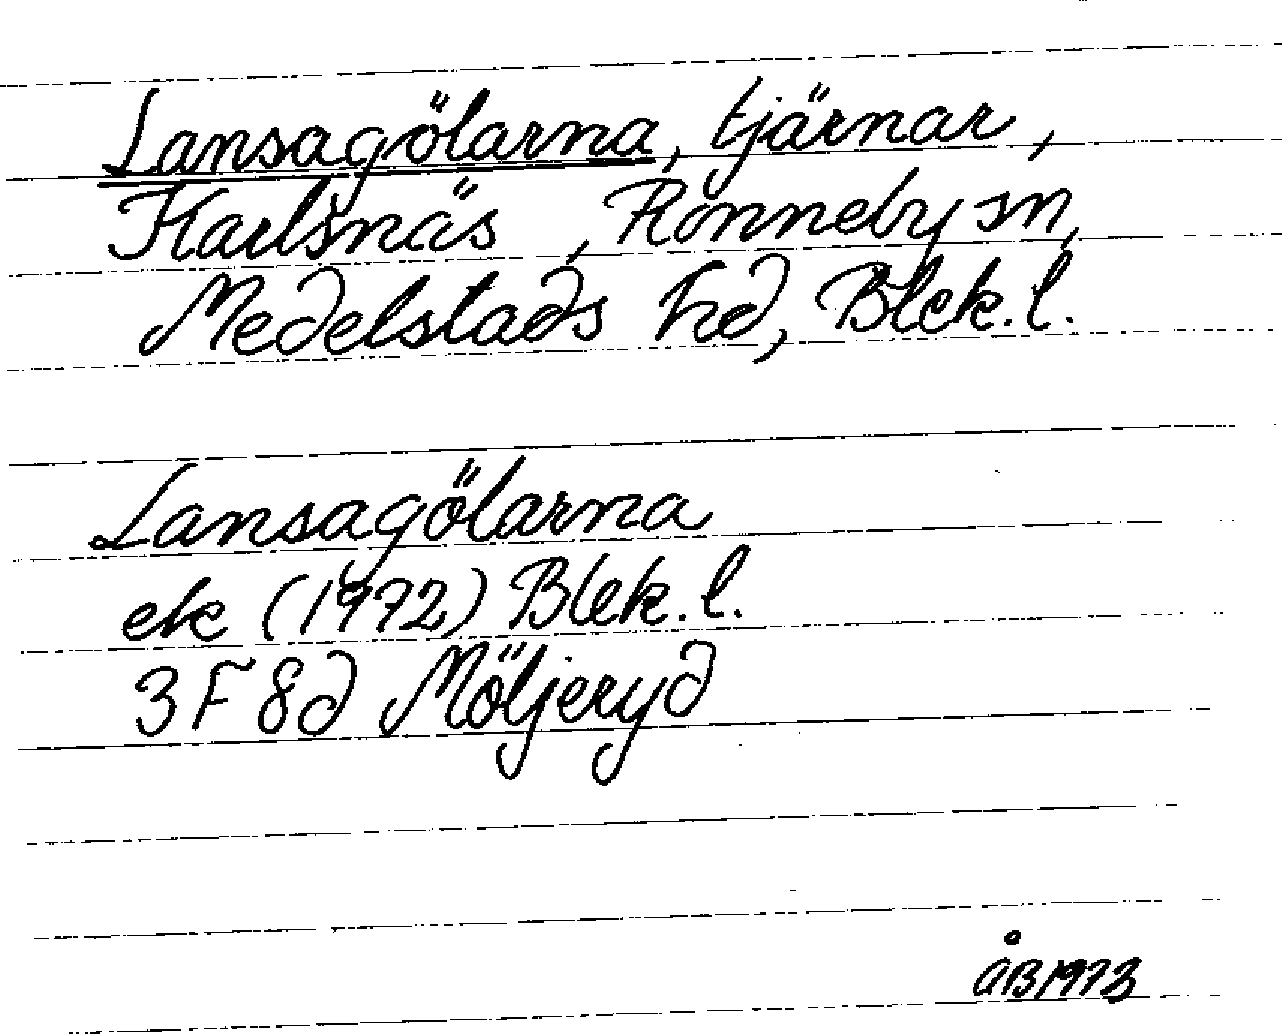 Lansagölarna, tjärnar,
Karlsnäs, Ronneby sn,
Medelstads hd, Blek. l.
Lansagölarna
ek (1972) Blek. l.
3 F 8d Möljeryd
ÅB 1973